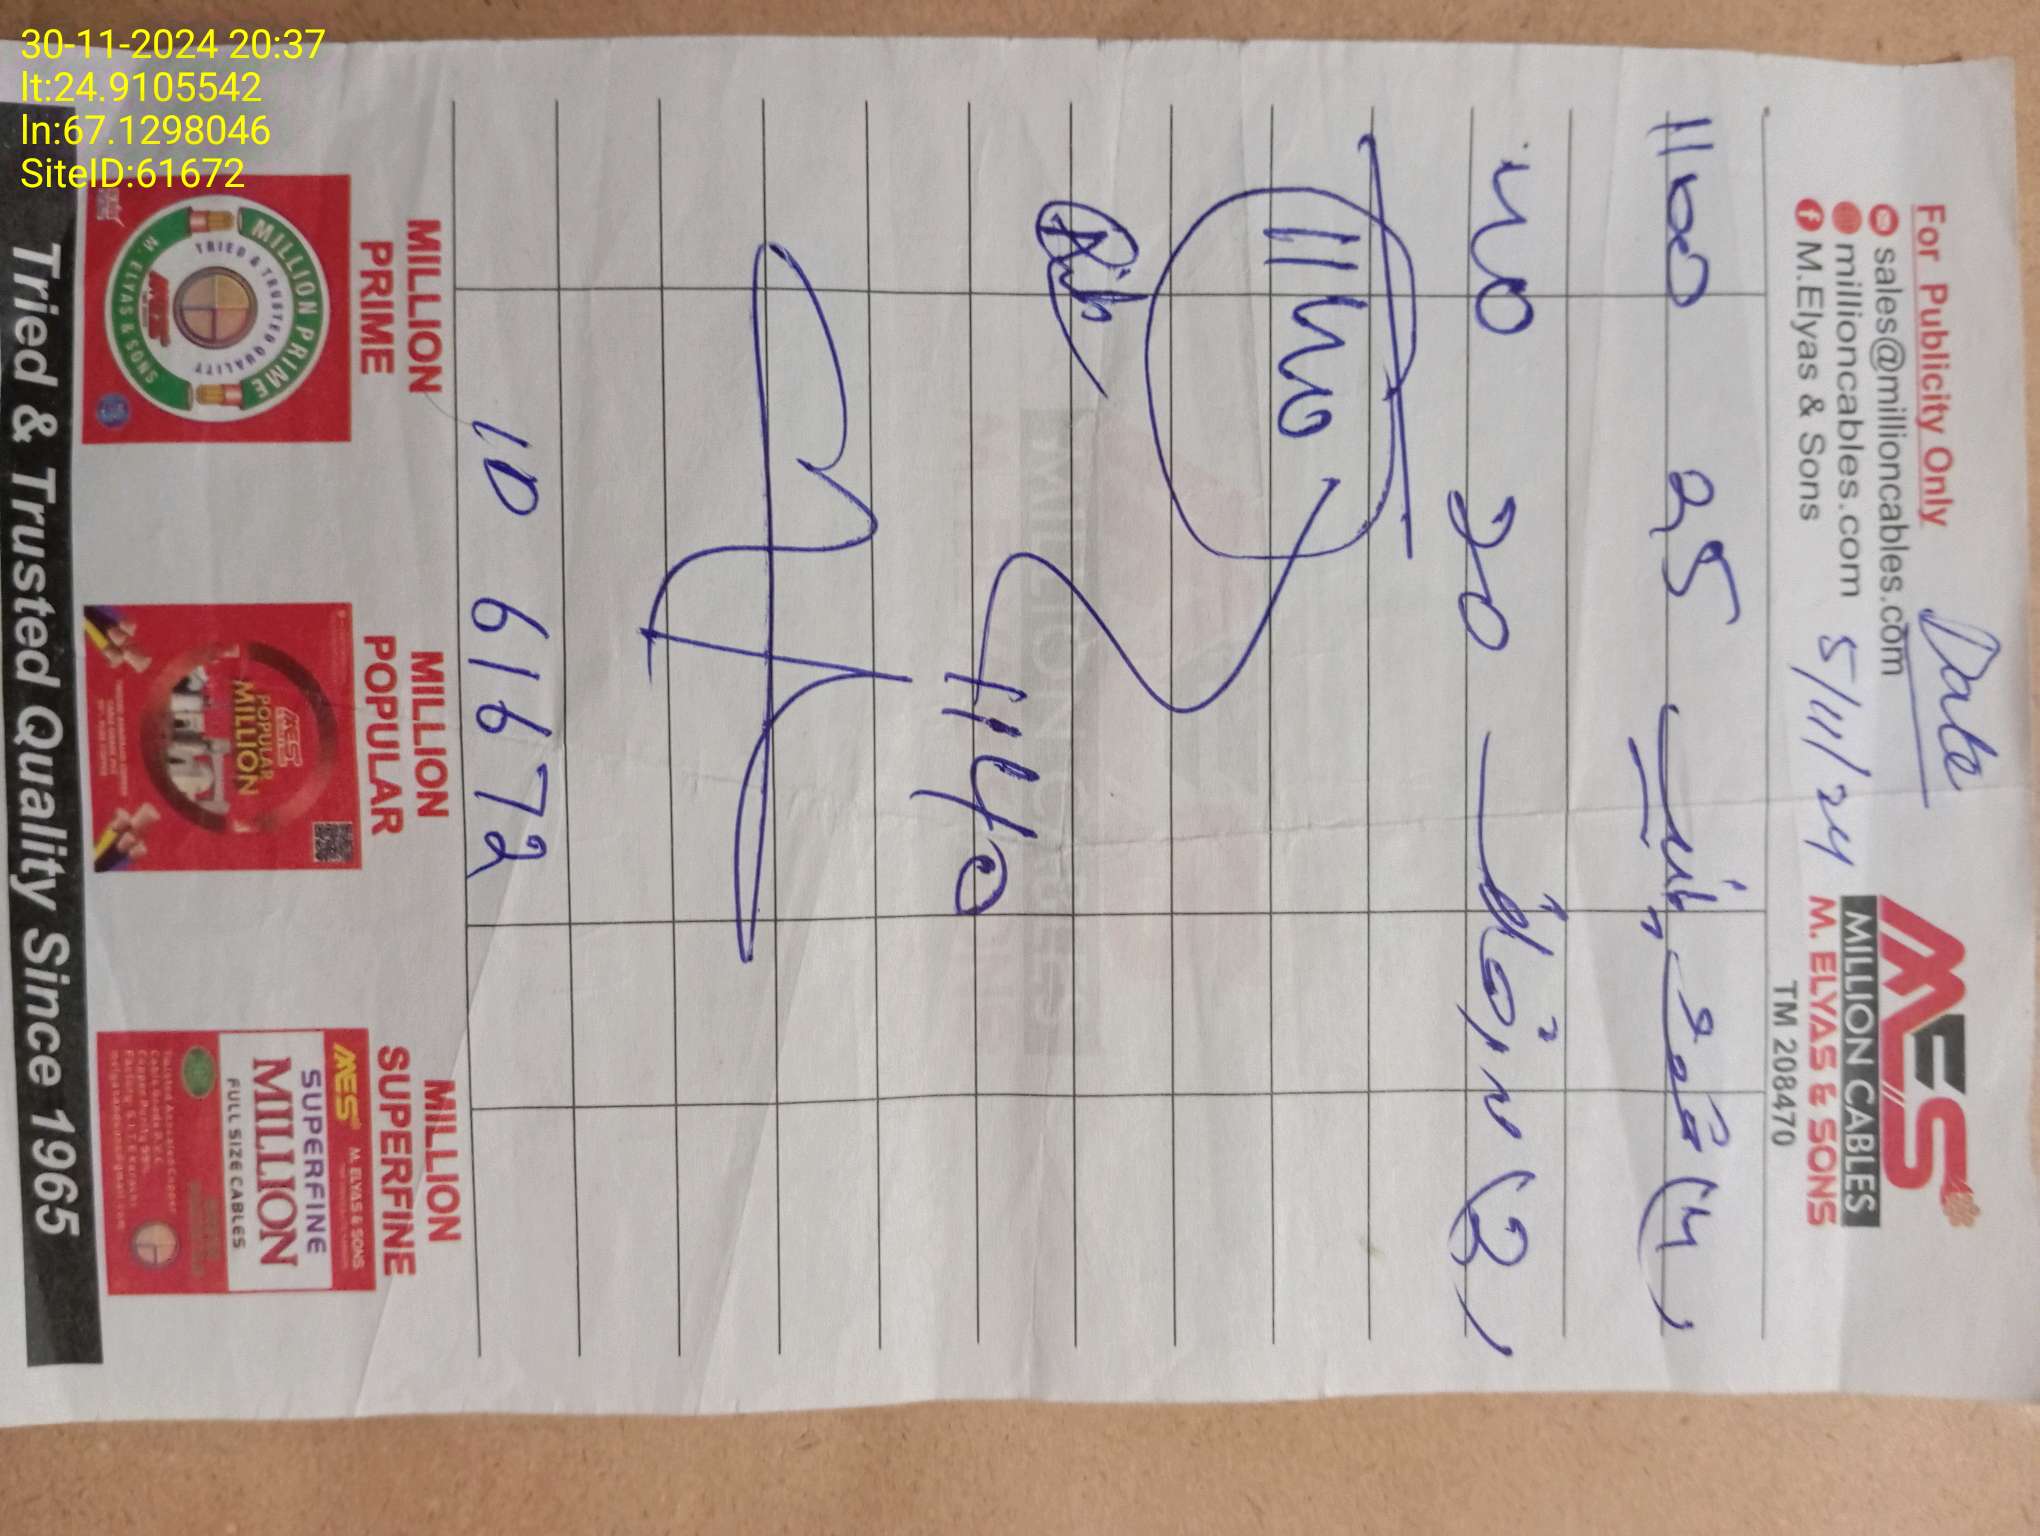 30-11-2024 20:37
lt:24.9105542
ln:67.1298046
SiteID:61672
For Publicity Only
sales@millioncables.com
millioncables.com
M.Elyas & Sons
Date
5/11/24
MES
MILLION CABLES
M. ELYAS & SONS
TM 208470
1100 25 (4)
40 20 (2)
1140
1140
ID 61672
MILLION PRIME
MILLION PRIME
TRIED & TRUSTED QUALITY
M. ELYAS & SONS
MILLION POPULAR
MES
POPULAR
MILLION
MILLION SUPERFINE
MES M. ELYAS & SONS
SUPERFINE
MILLION
FULL SIZE CABLES
Tried & Trusted Quality Since 1965